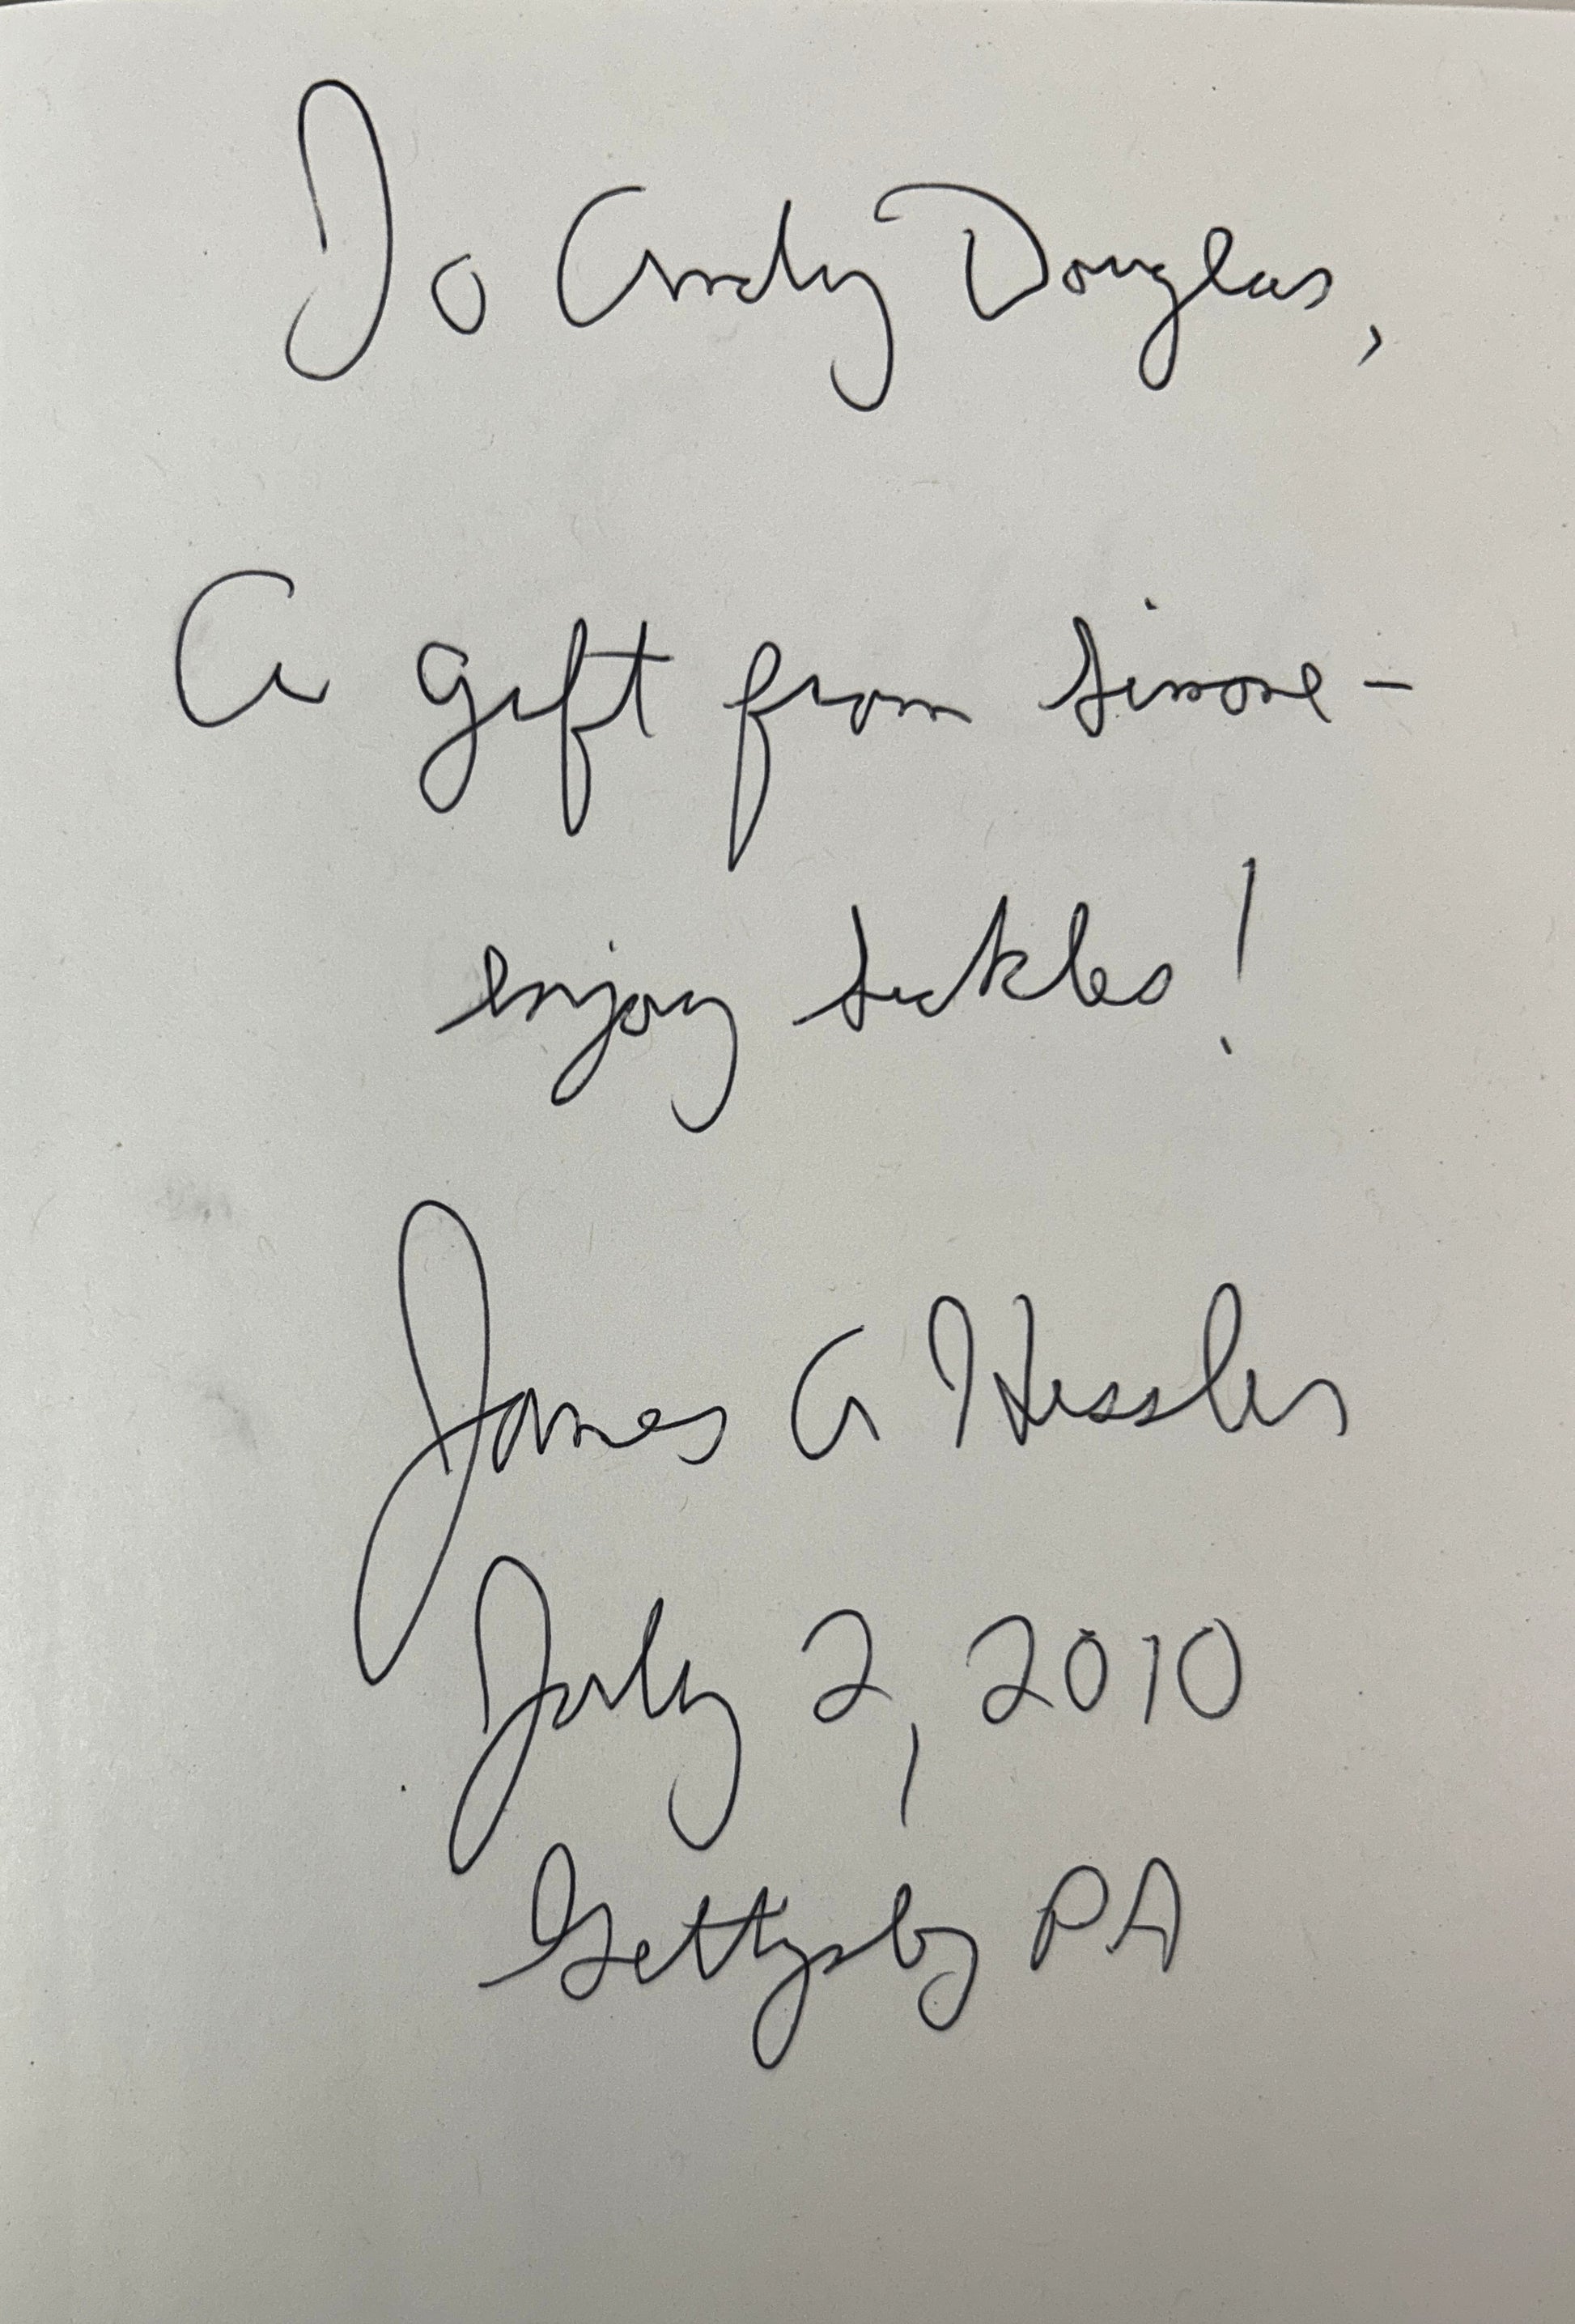 To Andy Douglas,
A gift from Simone -
enjoy Sickles!
James A Hessler
July 2, 2010
Gettysbg PA